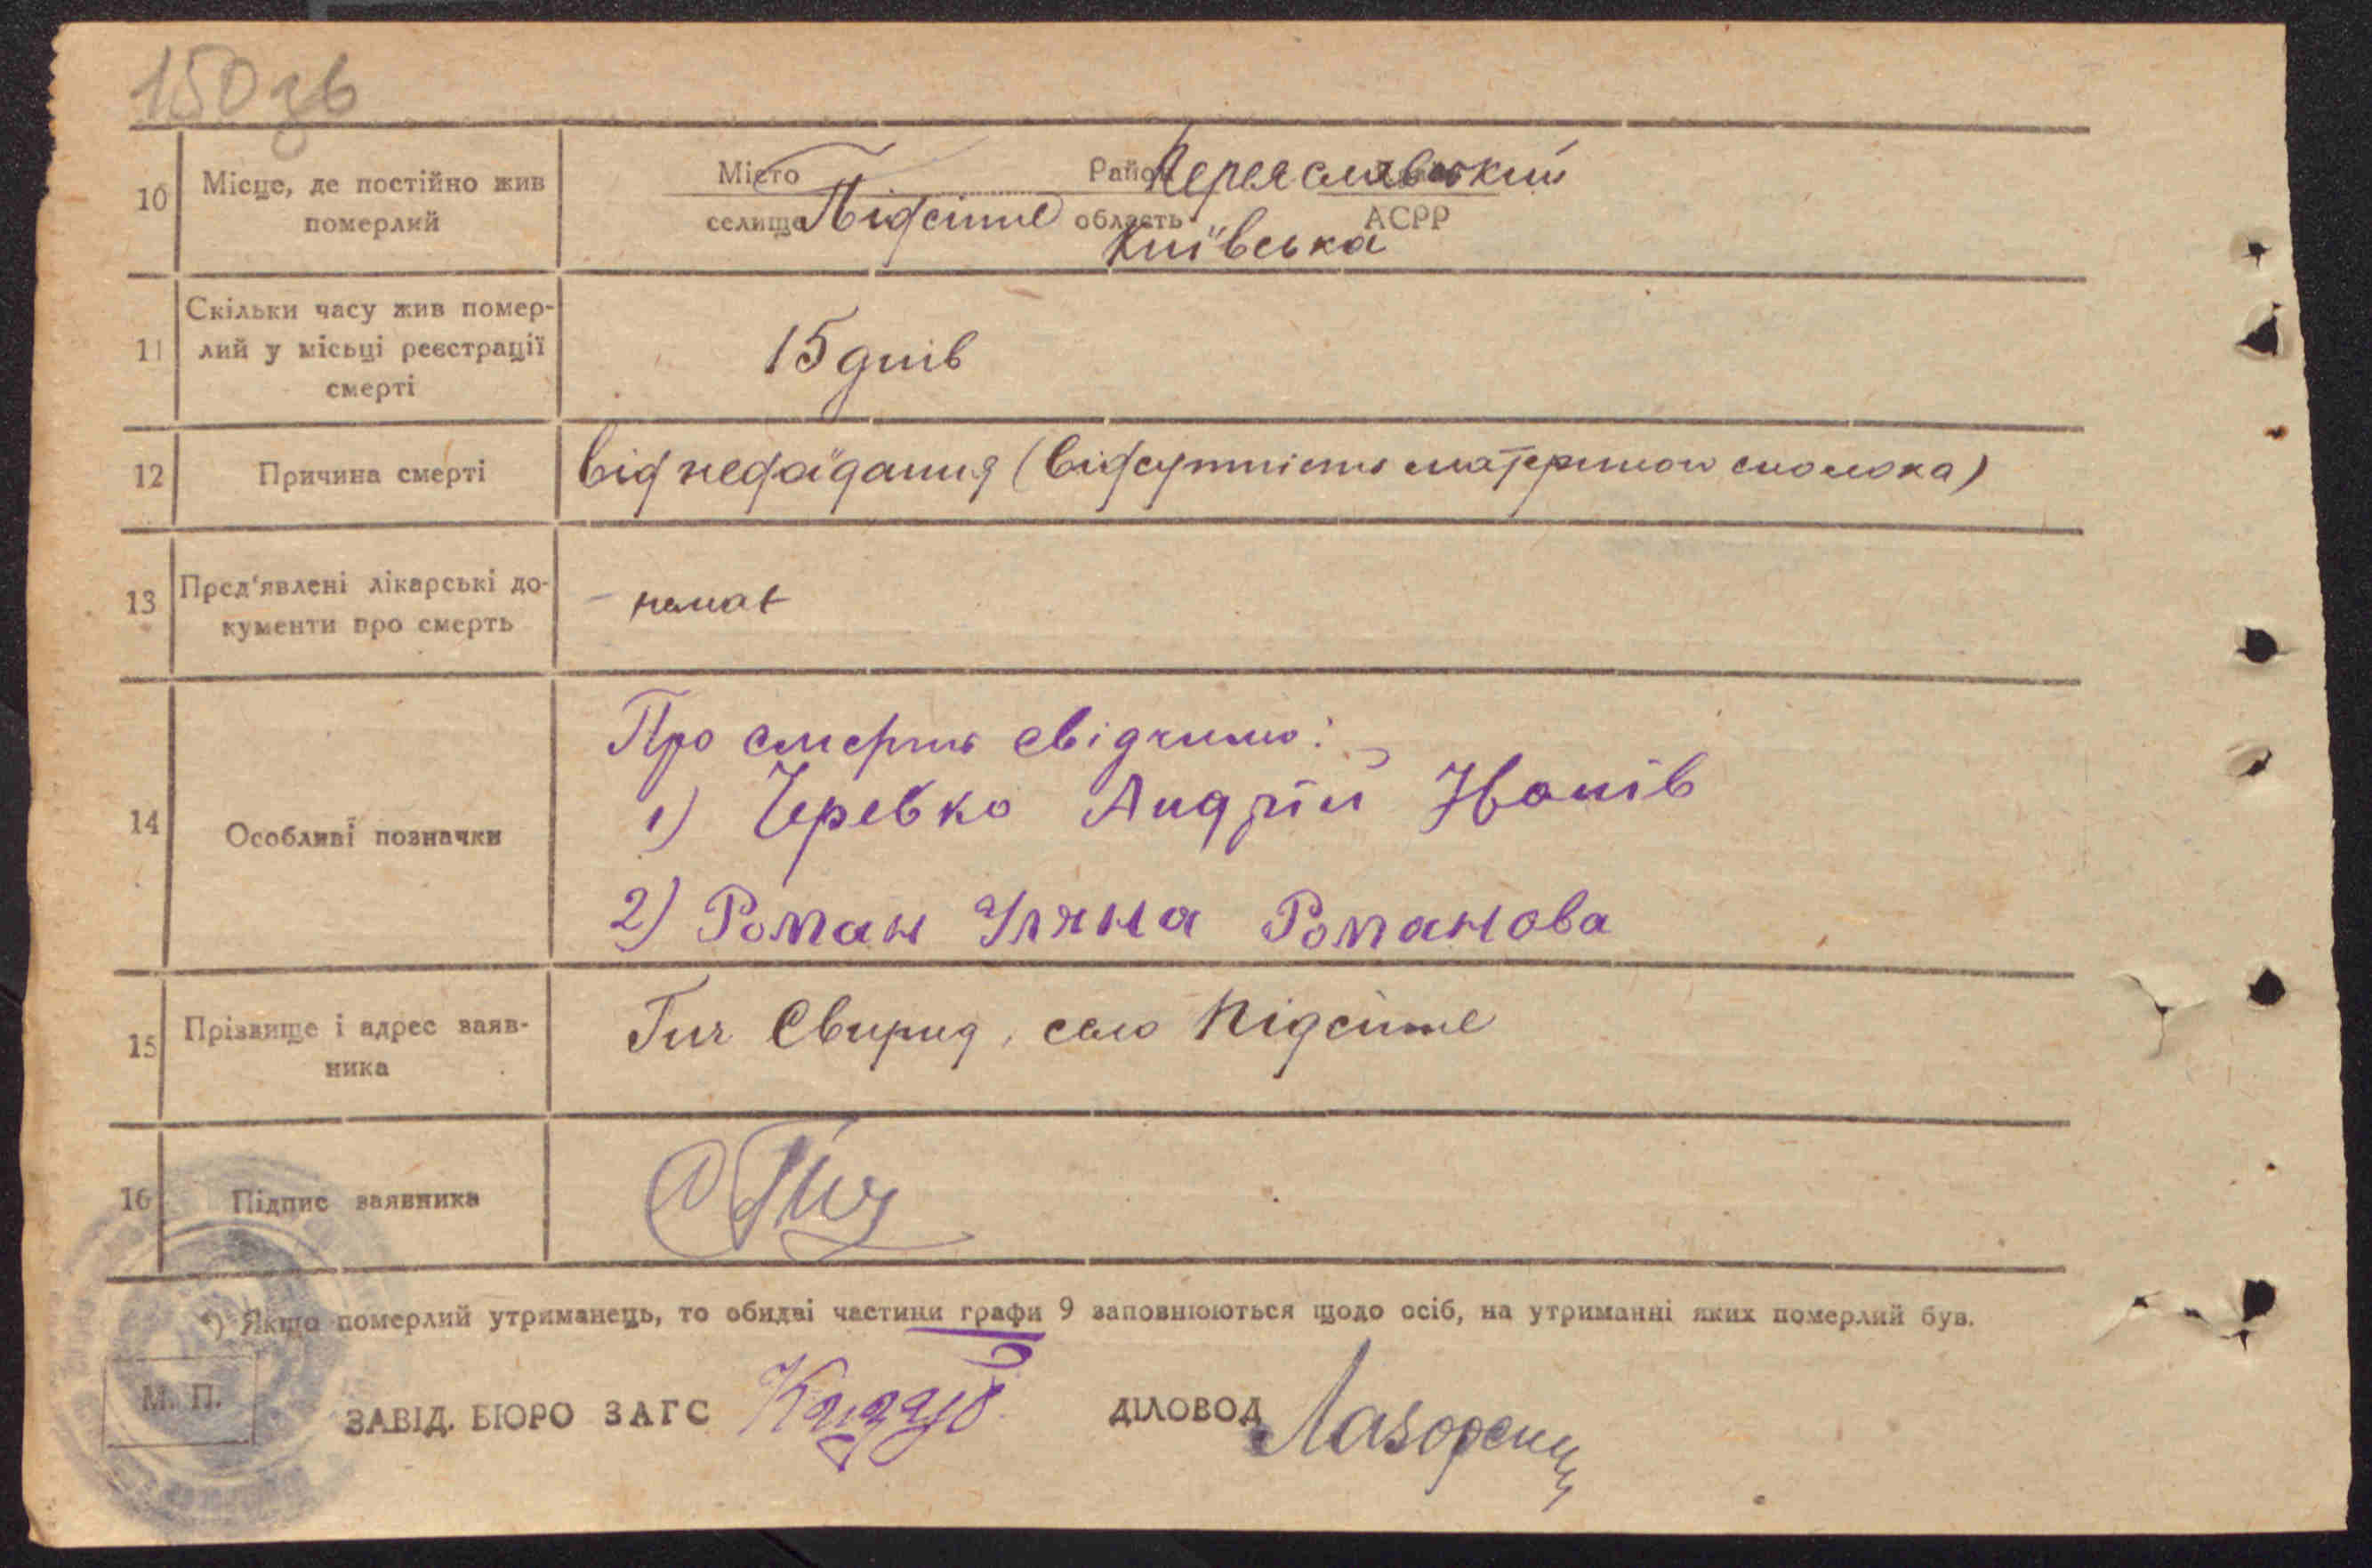 150зв
10 Місце, де постійно жив померлий
Місто Район Переяславський
селище Підсінне область АСРР
Київська
11 Скільки часу жив помер-
лий у місьці реєстрації
смерті
15 днів
12 Причина смерті від недоїдання (відсутність материного молока)
13 Пред'явлені лікарські до-
кументи про смерть
- немає
14 Особливі позначки
Про смерть свідчимо:
1) Черевко Андрій Іванів
2) Роман Уляна Романова
15 Прізвище і адрес заяв-
ника
Гич Свирид, село Підсінне
16 Підпис заявника
С Гич
*) Якщо померлий утриманець, то обидві частини графи 9 заповнюються щодо осіб, на утриманні яких померлий був.
М. П.
ЗАВІД. БЮРО ЗАГС ДІЛОВОД